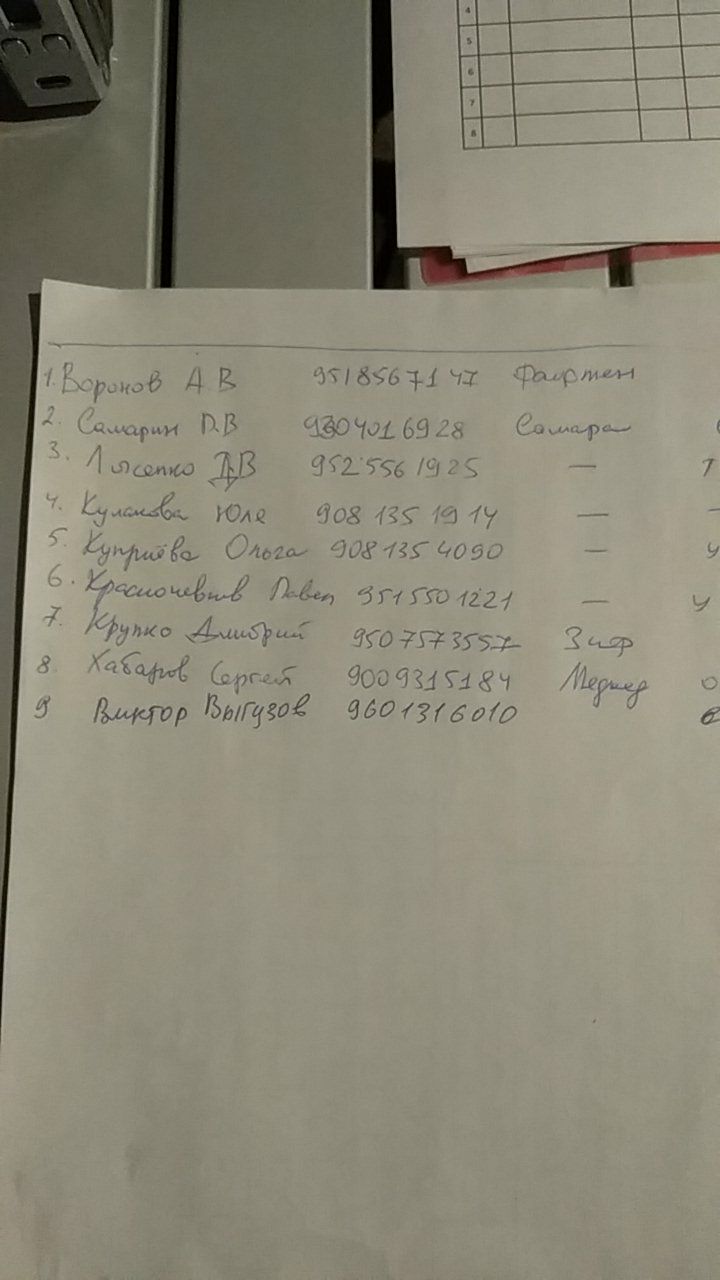 4
5
6
7
8
1. Воронов А В 9518567147
2. Самарин D.В 9304016928 Самара
3. Лысенко В 952 556 1925 —
4. Кулакова Юля 908 135 19 14 —
5. Куприёва Ольга 908 135 4090 —
6. Павел 951 550 1221 — у
7. Крупко Дмитрий 950 7573557 Зиф
8. Хабаров Сергей 9009315184 Медвед о
9 Виктор Выгузов 9601316010